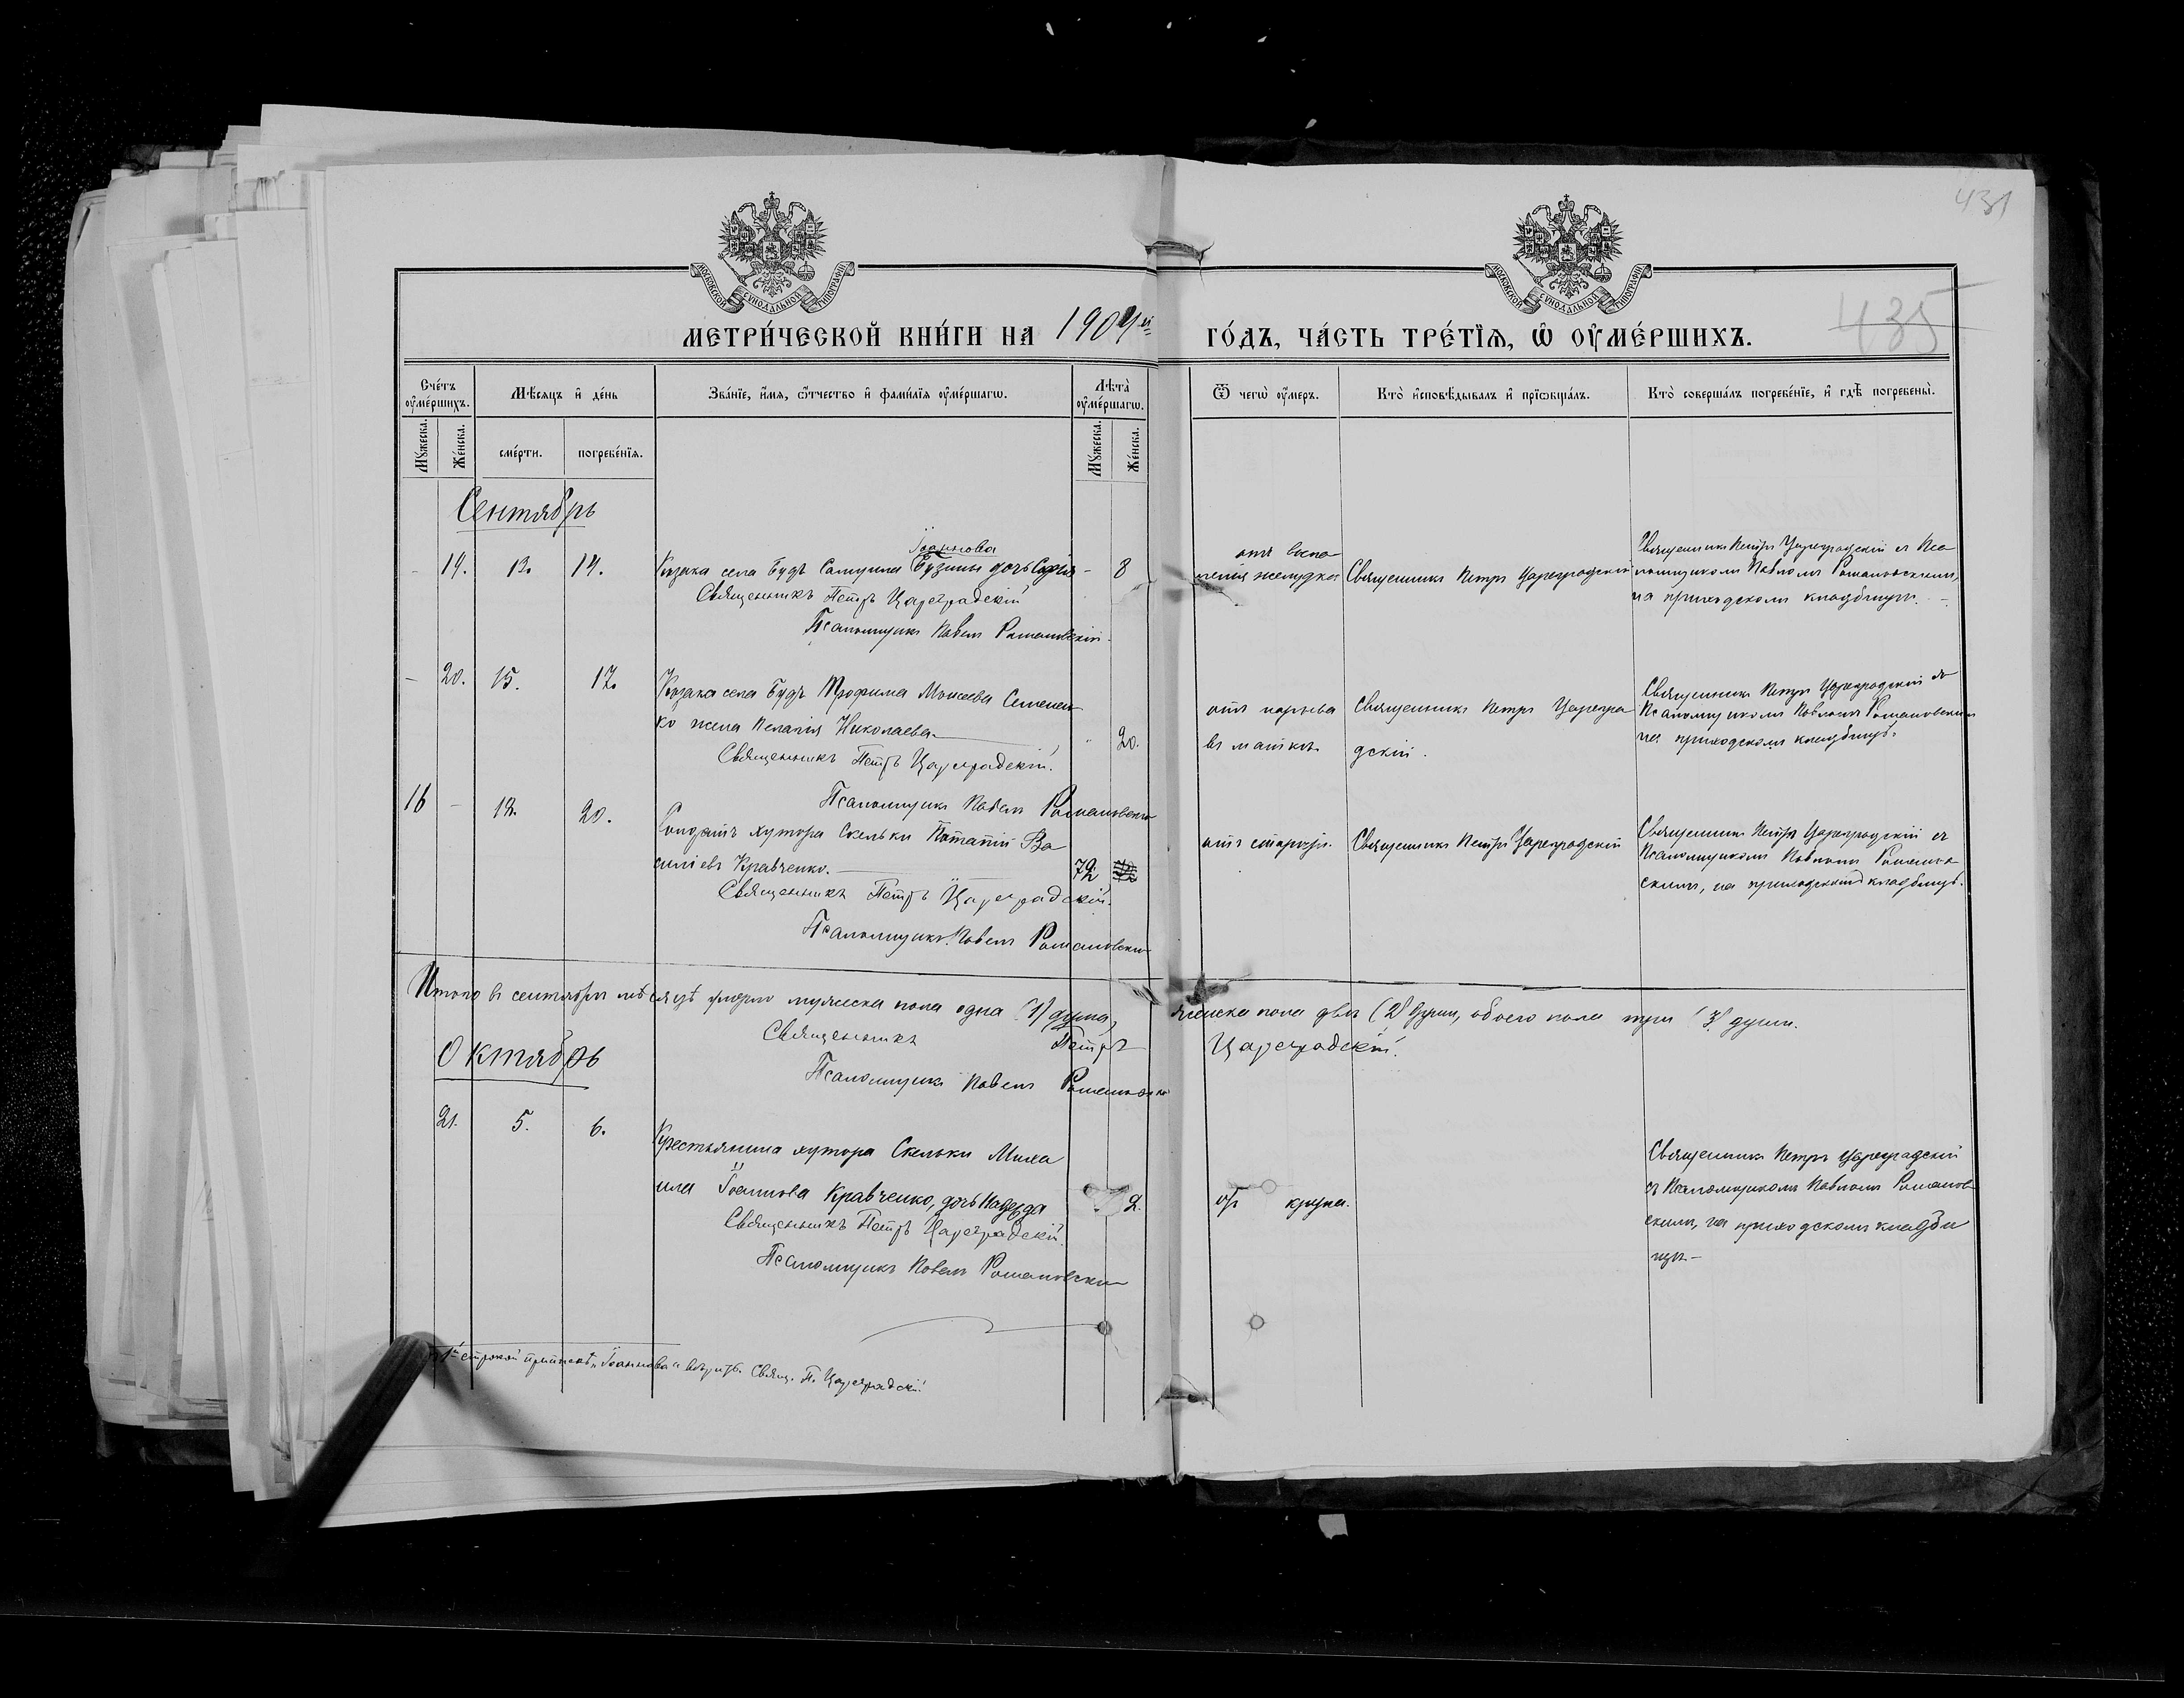 431
МОСКОВСКОЙ СѴНОДАЛЬНОЙ ТИПОГРАФІИ
МОСКОВСКОЙ СѴНОДАЛЬНОЙ ТИПОГРАФІИ
435
МЕТРИ́ЧЕСКОЙ КНИ́ГИ НА 1904й ГО́ДЪ, ЧА́СТЬ ТРЕ́ТЇѦ, Ѽ ОУ҆МЕ́РШИХЪ.
Сче́тъ оу҆ме́ршихъ.
Мѣ́сяцъ и҆ де́нь
Зва́нїе, и҆́мѧ, ѻ҆́тчество и҆ фами́лїѧ оу҆ме́ршагѡ.
Лѣта̀ оу҆ме́ршагѡ.
Ѿ чегѡ̀ оу҆́меръ.
Кто̀ и҆сповѣ́дывалъ и҆ прїѡбща́лъ.
Кто̀ соверша́лъ погребе́нїе, и҆ гдѣ̀ погребены̀.
Мꙋ́жеска.
Же́нска.
сме́рти.
погребе́нїѧ.
Мꙋ́жеска.
Же́нска.
Сентябрь
Іоаннова
- 19. 13. 14. Козака села Будъ Самуила Бузины дочь Софія - 8
Священникъ Петръ Цареградскій
Псаломщикъ Павелъ Романовскій
отъ воспа
ленія желудка
Священникъ Петръ Цареградскій
Священникъ Петръ Цареградскій съ Пса
ломщикомъ Павломъ Романовскимъ,
на приходскомъ кладбищѣ.
- 20. 15. 17. Козака села Будъ Трофима Моисеева Семенен
ко жена Пелагія Николаева. 20.
Священникъ Петръ Цареградскій.
Псаломщикъ Павелъ Романовскій
отъ нарыва
въ маткѣ
Священникъ Петръ Цареgra
дскій.
Священникъ Петръ Цареградскій съ
Псаломщикомъ Павломъ Романовскимъ
на приходскомъ кладбищѣ.
16 - 18. 20.
Солдатъ хутора Скельки Потапій Ва
силіевъ Кравченко. 72
Священникъ Петръ Цареградскій.
Псаломщикъ Павелъ Романовскій
отъ старости.
Священникъ Петръ Цареградскій
Священникъ Петръ Цареградскій съ
Псаломщикомъ Павломъ Романов
скимъ, на приходскомъ кладбищѣ.
Итого въ сентябрѣ мѣсяцѣ умерло мужеска пола одна (1) душа, женска пола двѣ (2) души, обоего пола три (3) души.
Священникъ Петръ Цареградскій.
Псаломщикъ Павелъ Романовскій
Октябрь
21. 5. 6.
Крестьянина хутора Скельки Миха
ила Іоаннова Кравченко, дочь Надежда 2.
Священникъ Петръ Цареградскій.
Псаломщикъ Павелъ Романовскій
отъ крупа.
Священникъ Петръ Цареградскій
съ Псаломщикомъ Павломъ Романов
скимъ, на приходскомъ кладби
щѣ.-
1й строкой „Іоаннова“ вѣрить. Свящ. П. Цареградскій